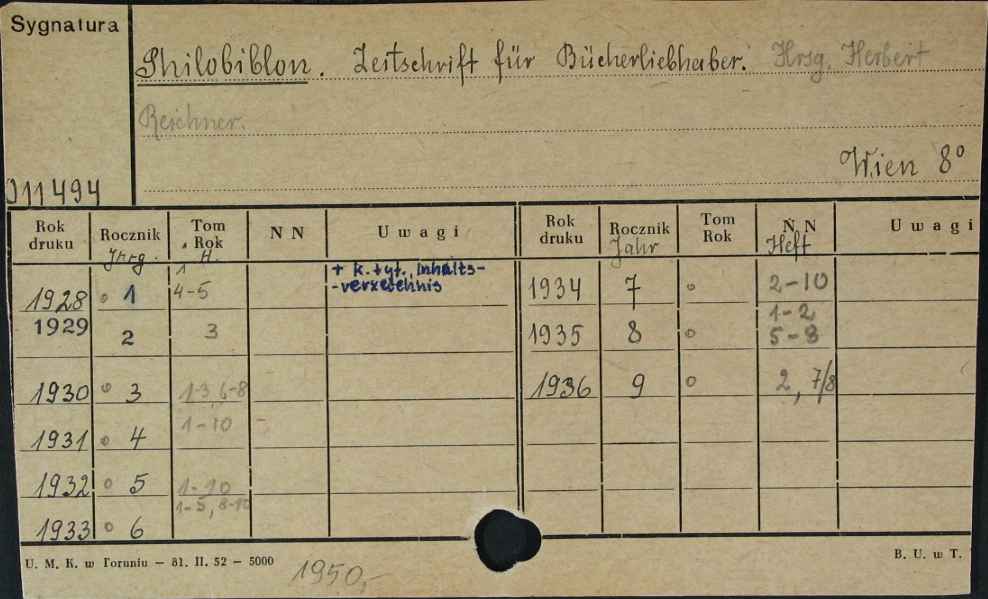 Sygnatura
Philobiblon. Zeitschrift für Bücherliebhaber. Hrsg. Herbert
Reichner.
Wien 8°
011494
Rok druku | Rocznik | Tom Rok | N N | Uwagi | Rok druku | Rocznik | Tom Rok | N N | Uwagi
Jhrg. | H. | Jahr | Heft
1 | + k. tyt., Inhalts-
1928 | ° 1 | 4-5 | -verzeichnis | 1934 | 7 | ° | 2-10
1-2
1929 | 2 | 3 | 1935 | 8 | ° | 5-8
1930 | ° 3 | 1-3, 6-8 | 1936 | 9 | ° | 2, 7/8
1-10
1931 | ° 4
1932 | ° 5 | 1-10
1-5, 8-10
1933 | ° 6
U. M. K. w Toruniu – 81. II. 52 – 5000
B. U. w T.
1950,-